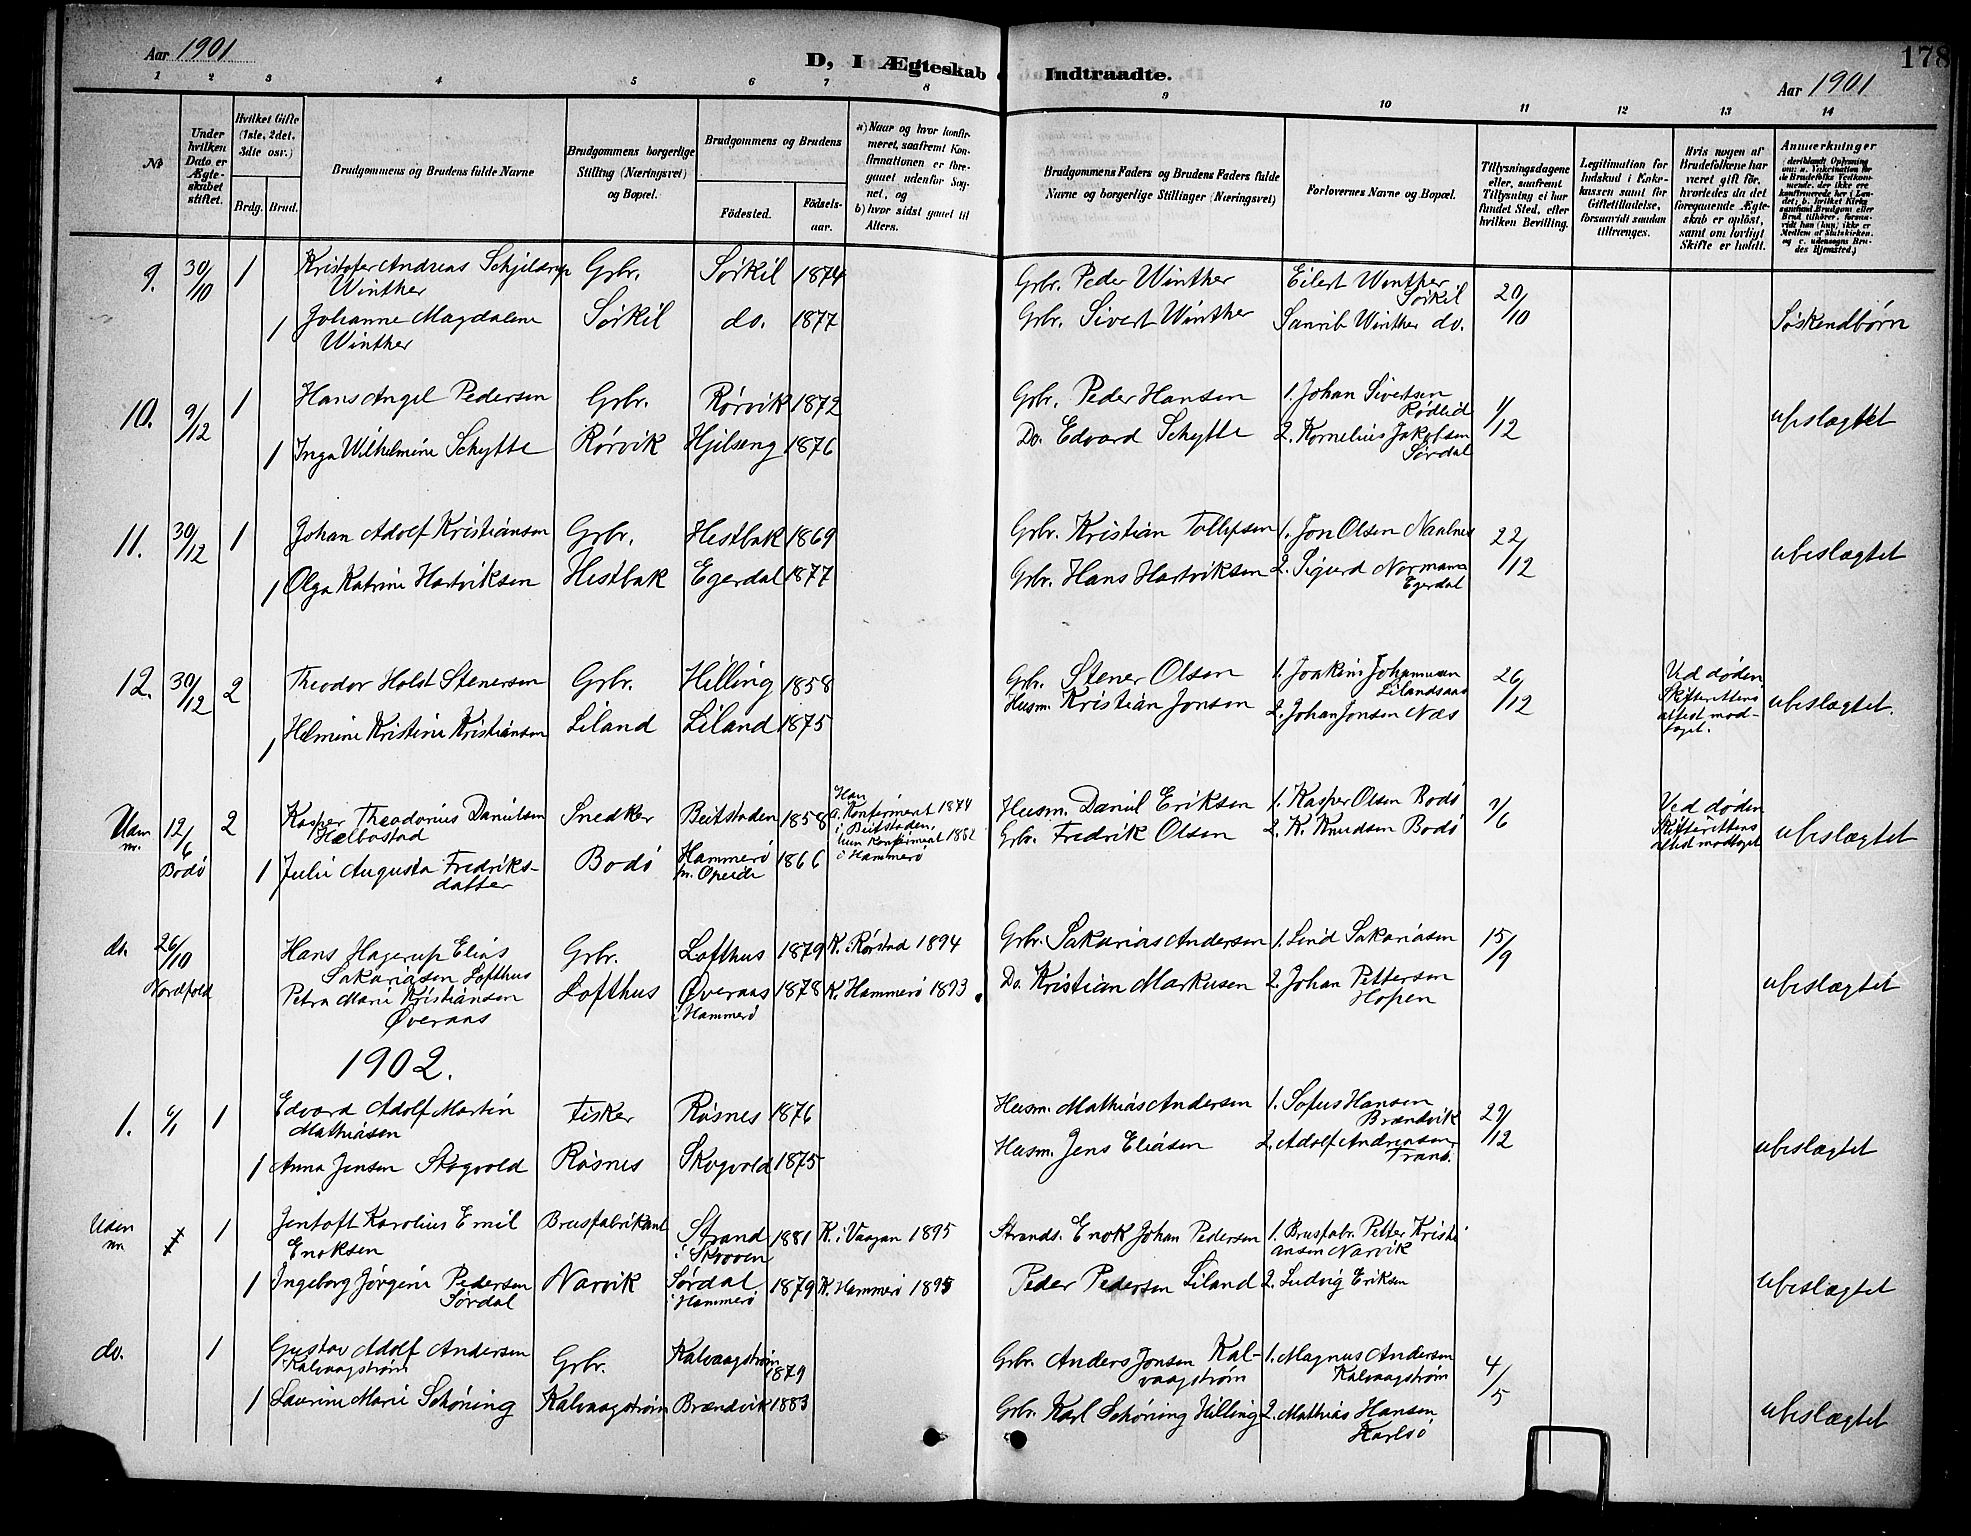 Aar 1901
D, I Ægteskab Indtraadte.
178
Aar 1901
1 2 3 4 5 6 7 8 9 10 11 12 13 14
No
Under hvilken Dato er Ægteskabet stiftet.
Hvilket Gifte (1ste, 2det, 3die osv.)
Brdg. Brud.
Brudgommens og Brudens fulde Navne
Brudgommens borgerlige Stilling (Næringsvei) og Bopæl.
Brudgommens og Brudens
Fødested. Fødselsaar.
a) Naar og hvor konfirmeret, saafremt Konfirmationen er foregaaet udenfor Sognet, og
b) hvor sidst gaaet til Alters.
Brudgommens Faders og Brudens Faders fulde Navne og borgerlige Stillinger (Næringsvei)
Forlovernes Navne og Bopæl.
Tillysningsdagene eller, saafremt Tillysning ei har fundet Sted, efter hvilken Bevilling.
Legitimation for Indskud i Enkekassen samt for Giftetilladelse, forsaavidt saadan tiltrænges.
Hvis nogen af Brudefolkene har været gift før, hvorledes da det foregaaende Ægteskab er opløst, samt om lovligt Skifte er holdt.
Anmerkninger
9. 30/10 1 Kristofer Andreas Schjelderup Grb. Sørkil 1874 Grb. Peder Winther Eilert Winther 20/10
Winther Sørkil
1 Johanne Magdalene Sørkil do. 1877 Grb. Sivert Winther Sanrib Winther do. Søskendbørn
Winther
10. 9/12 1 Hans Angel Pedersen Grb. Rørvik 1872 Grb. Peder Hansen 1. Johan Sivertsen 1/12
Rødlid ubeslægtet
1 Inga Wilhelmine Schytte Rørvik Hjilseng 1876 Do. Edvard Schytte 2. Kornelius Jakobsen
Sørdal
11. 30/12 1 Johan Adolf Kristiansen Grb. Hestbak 1869 Grb. Kristian Tollefsen 1. Jon Olsen Naalnes 22/12
1 Olga Katrine Hartviksen Hestbak Egerdal 1877 Grb. Hans Hartviksen 2. Sigurd Normann ubeslægtet
Egerdal
12. 30/12 2 Theodor Holst Stenersen Grb. Hilling 1858 Grb. Stener Olsen 1. Joakim Johannesen 26/12 Ved døden
Lilandsaas Skifterettens
1 Helmine Kristine Kristiansen Liland Liland 1875 Husm. Kristian Jonsen 2. Johan Jonsen Næs attest mod- ubeslægtet.
taget.
Uden nr. 12/6 2 Kasper Theodorius Danielsen Snedker Beitstaden 1858 Han a. Konfirmert 1874 Husm. Daniel Eriksen 1. Kasper Olsen Bodø 7/6 Ved døden
Hælbostad i Beitstaden, Skifterettens
Bodø hun Konfirmert 1882 Grb. Fredrik Olsen 2. K. Knudsen Bodø attest modtaget ubeslægtet
1 Julie Augusta Fredriks- Bodø Hammerø 1866 i Hammerø
datter m. Opeide
do. 26/10 Hans Hagerup Elias Grb. Lofthus 1879 K. i Rørstad 1894 Grb. Sakarias Andersen 1. Lind Sakariasen 15/9
Sakariasen Lofthus
Nordfold Petra Marie Kristiansen Lofthus Øveraas 1878 K. Hammerø 1893 Do. Kristian Markusen 2. Johan Pettersen ubeslægtet
Øveraas i Hammerø Hopen
1902.
1. 6/1 1 Edvard Adolf Martin Fisker Røsnes 1876 Husm. Mathias Andersen 1. Sofus Hansen 29/12
Mathiasen Brændvik
1 Anna Jensen Skogvold Røsnes Skogvold 1875 Husm. Jens Eliasen 2. Adolf Andreasen ubeslægtet
Tranø.
Uden nr. 1 Jentoft Karolius Emil Brusfabrikant Strand 1881 K. i Vaagan 1895 Strands. Enok Johan Pedersen 1. Brusfabr. Petter Kristi-
Enoksen i Skroven ansen Narvik
1 Ingeborg Jørgine Pedersen Narvik Sørdal 1879 K. Hammerø 1895 Peder Pedersen Liland 2. Ludvig Eriksen ubeslægtet
Sørdal i Hammerø
do. 1 Gustav Adolf Andersen Grb. Kalvaagstrøm 1879 Grb. Anders Jonsen Kal- 1. Magnus Andersen 4/5
Kalvaagstrøm vaagstrøm Kalvaagstrøm
1 Laurine Marie Schøning Kalvaagstrøm Brændvik 1883 Grb. Karl Schøning Hilling 2. Mathias Hansen ubeslægtet
Karlsø